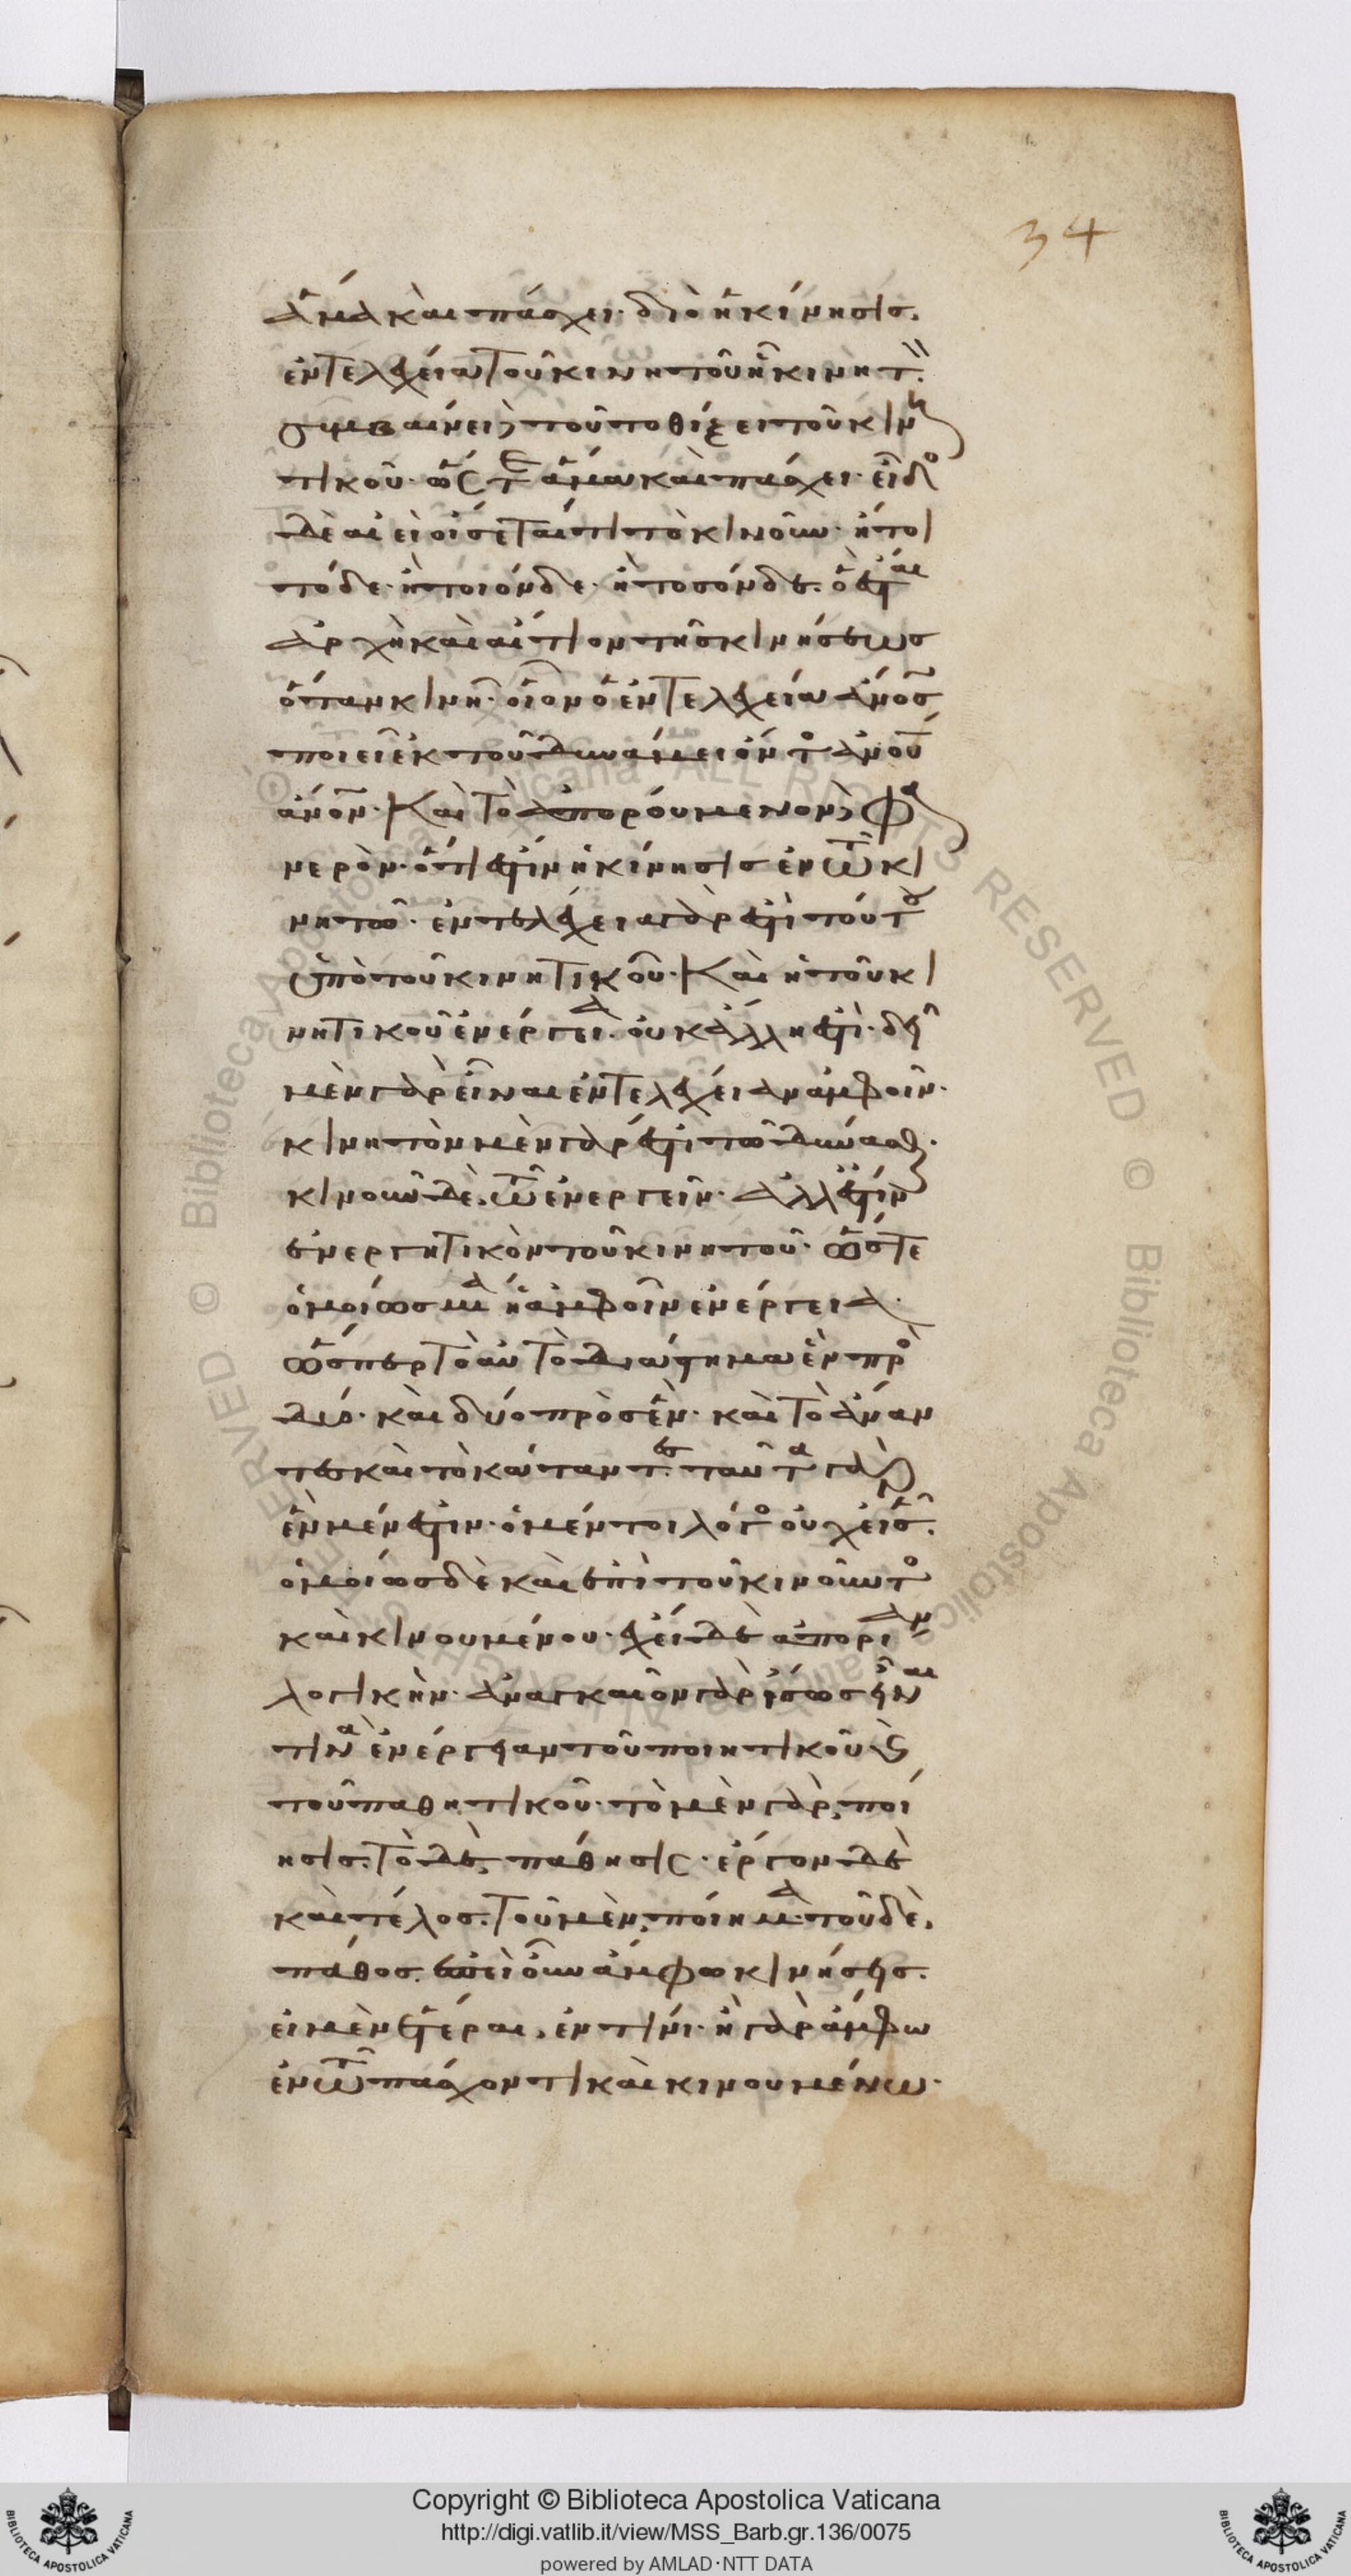 34
ἅμα καὶ πάσχει· διὸ ἡ κίνησις.
ἐντελέχεια τοῦ κινητοῦ ἧ κινητ.
συμβαίνει δὲ τοῦτο θίξει τοῦ κινη
τικοῦ· ὥστε ἅμα καὶ πάσχει· εἶδος
δὲ αἰεὶ οἴσεταί τι τὸ κινοῦν· ἤτοι
τόδε· ἢ τοιόνδε· ἢ τοσόνδε· ὃ ἔσται
ἀρχὴ καὶ αἴτιον τῆς κινήσεως
ὅταν κινῆ· οἷον ὁ ἐντελεχεία ἄνος
ποιεῖ ἐκ τοῦ δυνάμει ὄντος ἀνου
ἄνον· Καὶ τὸ ἀπορούμενον δὲ φα
νερόν· ὅτι ἐστὶν ἡ κίνησις ἐν τῶ κι
νητῶ· ἐντελέχεια γάρ ἐστι τούτου
ὑπὸ τοῦ κινητικοῦ· Καὶ ἡ τοῦ κι
νητικοῦ ἐνέργεια οὐκ ἄλλη ἐστί· δεῖ
μὲν γὰρ εἶναι ἐντελέχειαν ἀμφοῖν·
κινητὸν μὲν γάρ ἐστι τῶ δύνασθαι·
κινοῦν δὲ τῶ ἐνεργεῖν· ἀλλ' ἔστιν
ἐνεργητικὸν τοῦ κινητοῦ· ὥστε
ὁμοίως μία ἡ ἀμφοῖν ἐνέργεια·
ὥσπερ τὸ αὐτὸ διάστημα ἓν πρὸς
δύο· καὶ δύο πρὸς ἕν· καὶ τὸ ἄναν
τες καὶ τὸ κάταντες· ταῦτα γὰρ
ἓν μέν ἐστιν· ὁ μέντοι λόγος οὐχ εἷς.
ὁμοίως δὲ καὶ ἐπὶ τοῦ κινοῦντος
καὶ κινουμένου· ἔχει δὲ ἀπορίαν
λογικήν· ἀναγκαῖον γὰρ ἴσως εἶναι
τινα ἐνέργειαν τοῦ ποιητικοῦ καὶ
τοῦ παθητικοῦ· τὸ μὲν γὰρ, ποί
ησις· τὸ δὲ, πάθησις· ἔργον δὲ
καὶ τέλος· τοῦ μὲν, ποίημα· τοῦ δὲ,
πάθος. ἐπεὶ οὖν ἄμφω κινήσεις.
εἰ μὲν ἕτεραι, ἐν τίνι· ἢ γὰρ ἄμφω
ἐν τῶ πάσχοντι καὶ κινουμένω·
Copyright © Biblioteca Apostolica Vaticana
http://digi.vatlib.it/view/MSS_Barb.gr.136/0075
powered by AMLAD·NTT DATA